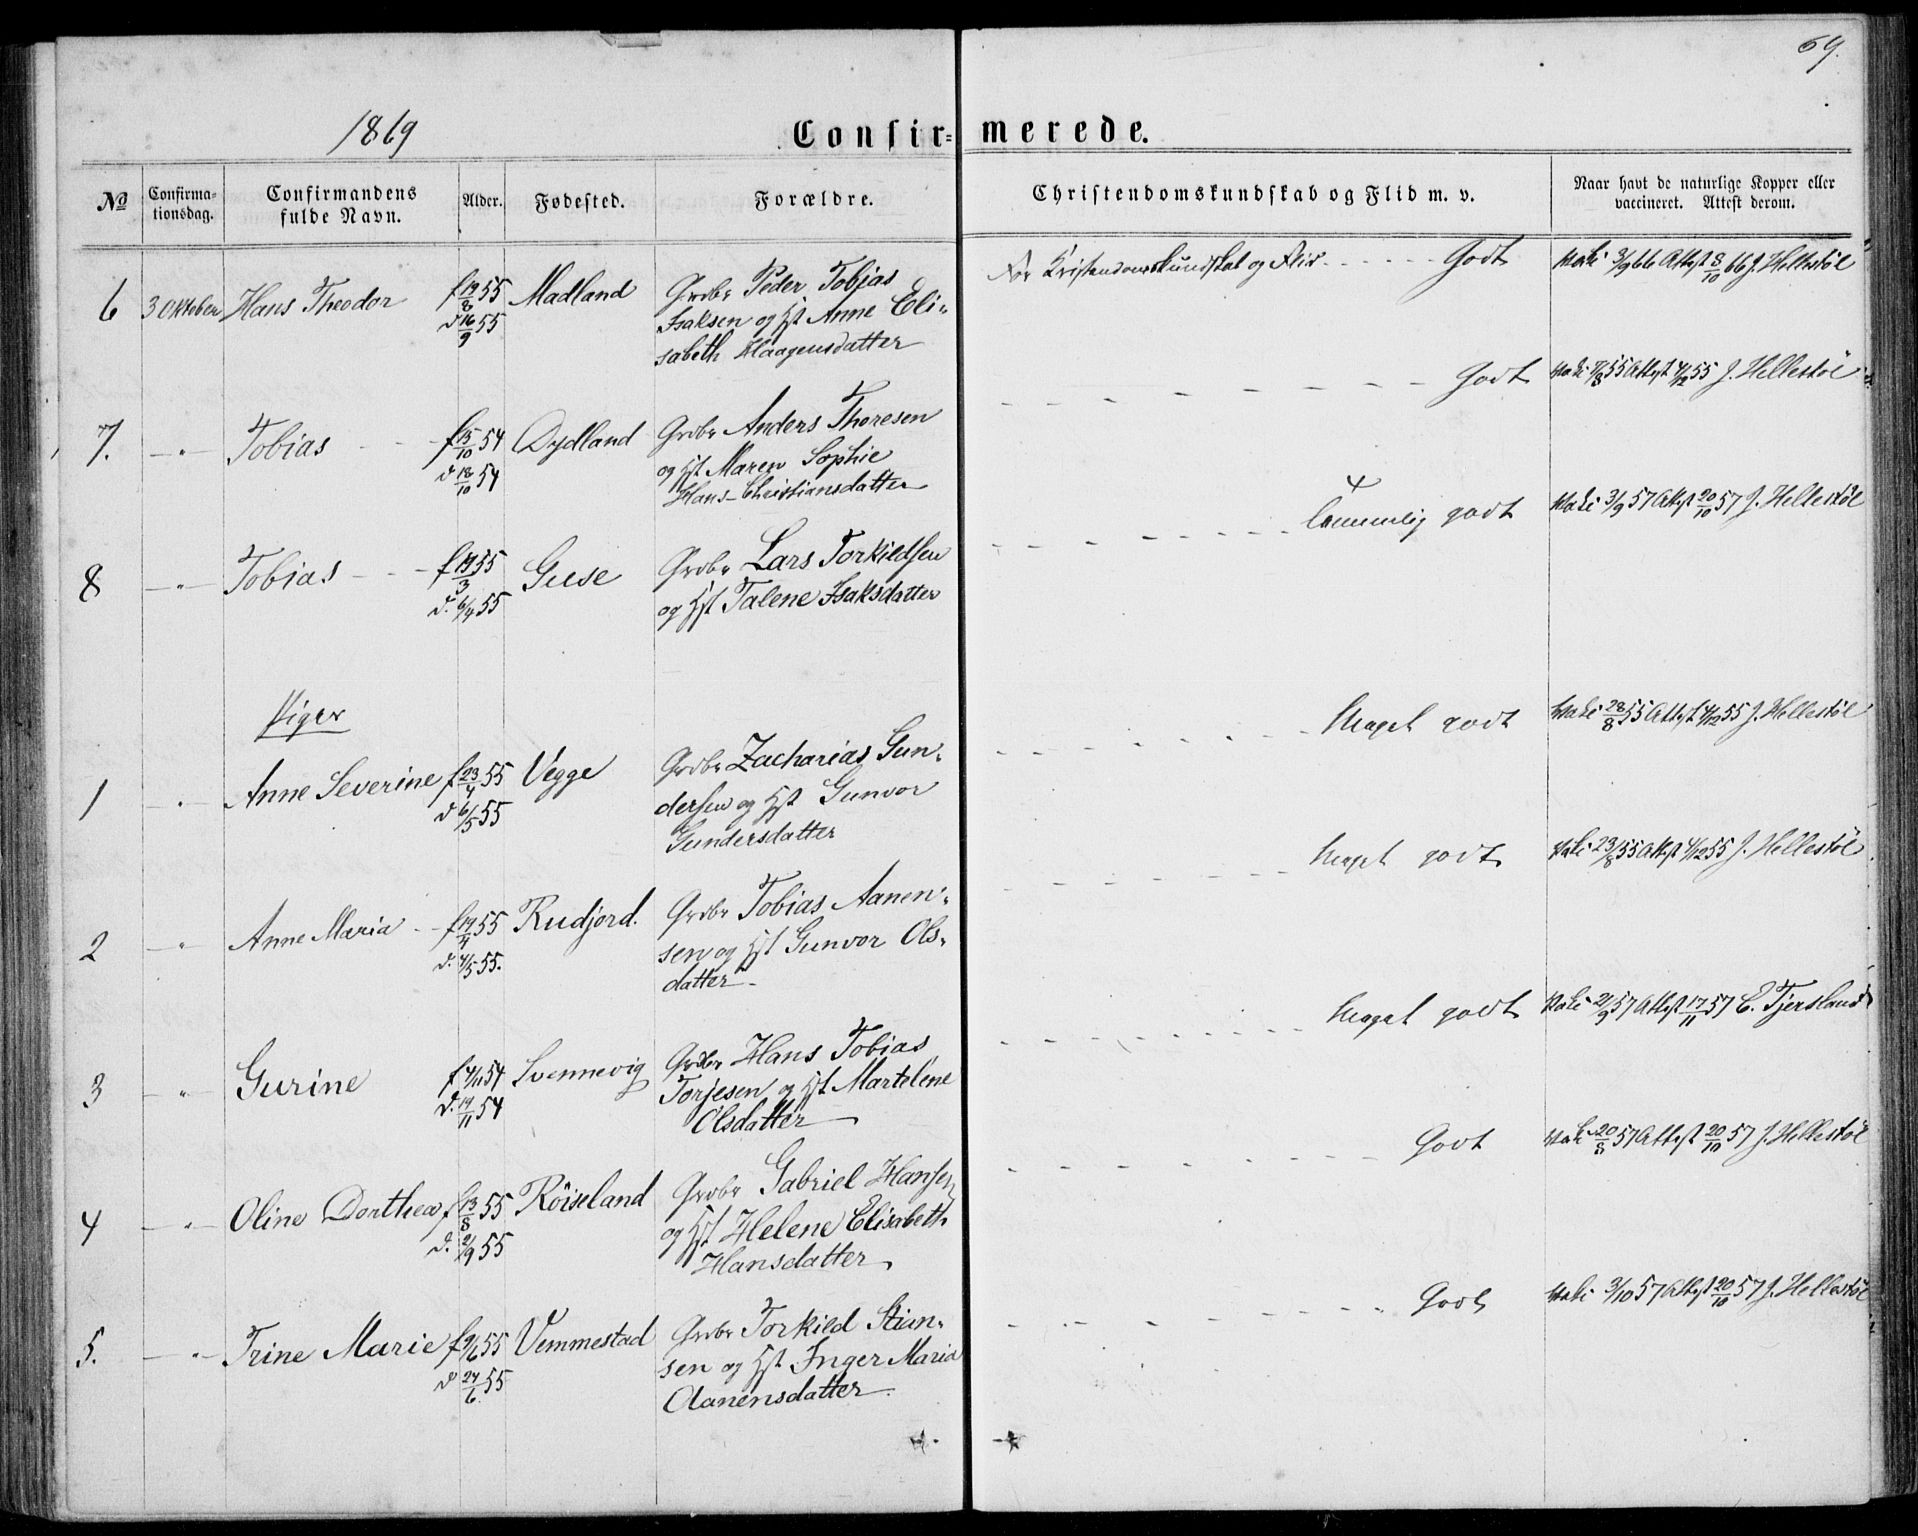 69.
1869
Confir=merede.
№
Confirma-
tionsdag.
Confirmandens
fulde Navn.
Alder.
Fødested.
Forældre.
Christendomskundskab og Flid m. v.
Naar havt de naturlige Kopper eller
vaccineret. Attest derom.
6 3 Oktober Hans Theodor f 19/8 55 Madland Grdbr Peder Tobias
d 16/9 55 Isaksen og Hst Anne Eli-
sabeth Haagensdatter
For Kristendomskundskab og Flid - - - - - Godt Vaki 3/9 66 Attest 8/10 66 J. Hellestöl
7. - " - Tobias - - f 15/10 54 Dydland Grdbr Anders Thoresen
d 18/10 54 og Hst Maren Sophie
Hans-Christiansdatter
Godt Vaki 55 Attest 4/12 55 J. Hellestöl
8 - " - Tobias - - - f 19/3 55 Guse Grdbr Lars Torkildsen
d. 6/4 55 og Hst Talene Isaksdatter
4
Temmelig godt Vaki 3/9 57 Attest 20/10 57 J. Hellestöl
Piger
1 " Anne Severine f 23/4 55 Vegge Grdbr Zacharias Gun-
d 6/5 55 dersen og Hst Gunvor
Gundersdatter
Meget godt Vaki 28/8 55 Attest 4/12 55 J. Hellestöl
2 - " Anne Maria - f 19/4 55 Rudjord. Grdbr Tobias Aanen-
d. 4/5 55. sen og Hst Gunvor Ols-
datter
Meget godt Vaki 23/8 55 Attest 4/12 55 J. Hellestöl
3 - " - Gurine f 4/11 54 Svennevig Grdbr Hans Tobias
d. 19/11 54 Torjesen og Hst Martelene
Olsdatter
Meget godt Vaki 2/9 57 Attest 17/11 57 C. Tjersland
4 - " - Oline Dorthea f 13/8 55 Röiseland Grdbr Gabriel Hansen
d. 2/9 55 og Hst Helene Elisabeth
Hansdatter
Godt Vaki 20/8 57 Attest 20/10 57 J. Hellestöl
5. - " - Trine Marie f 9/6 55 Vemmestad Grdbr Torkild Stian-
d 24/6 55 sen og Hst Inger Maria
Aanensdatter
Godt Vaki 3/10 57 Attest 20/10 57 J. Hellestöl